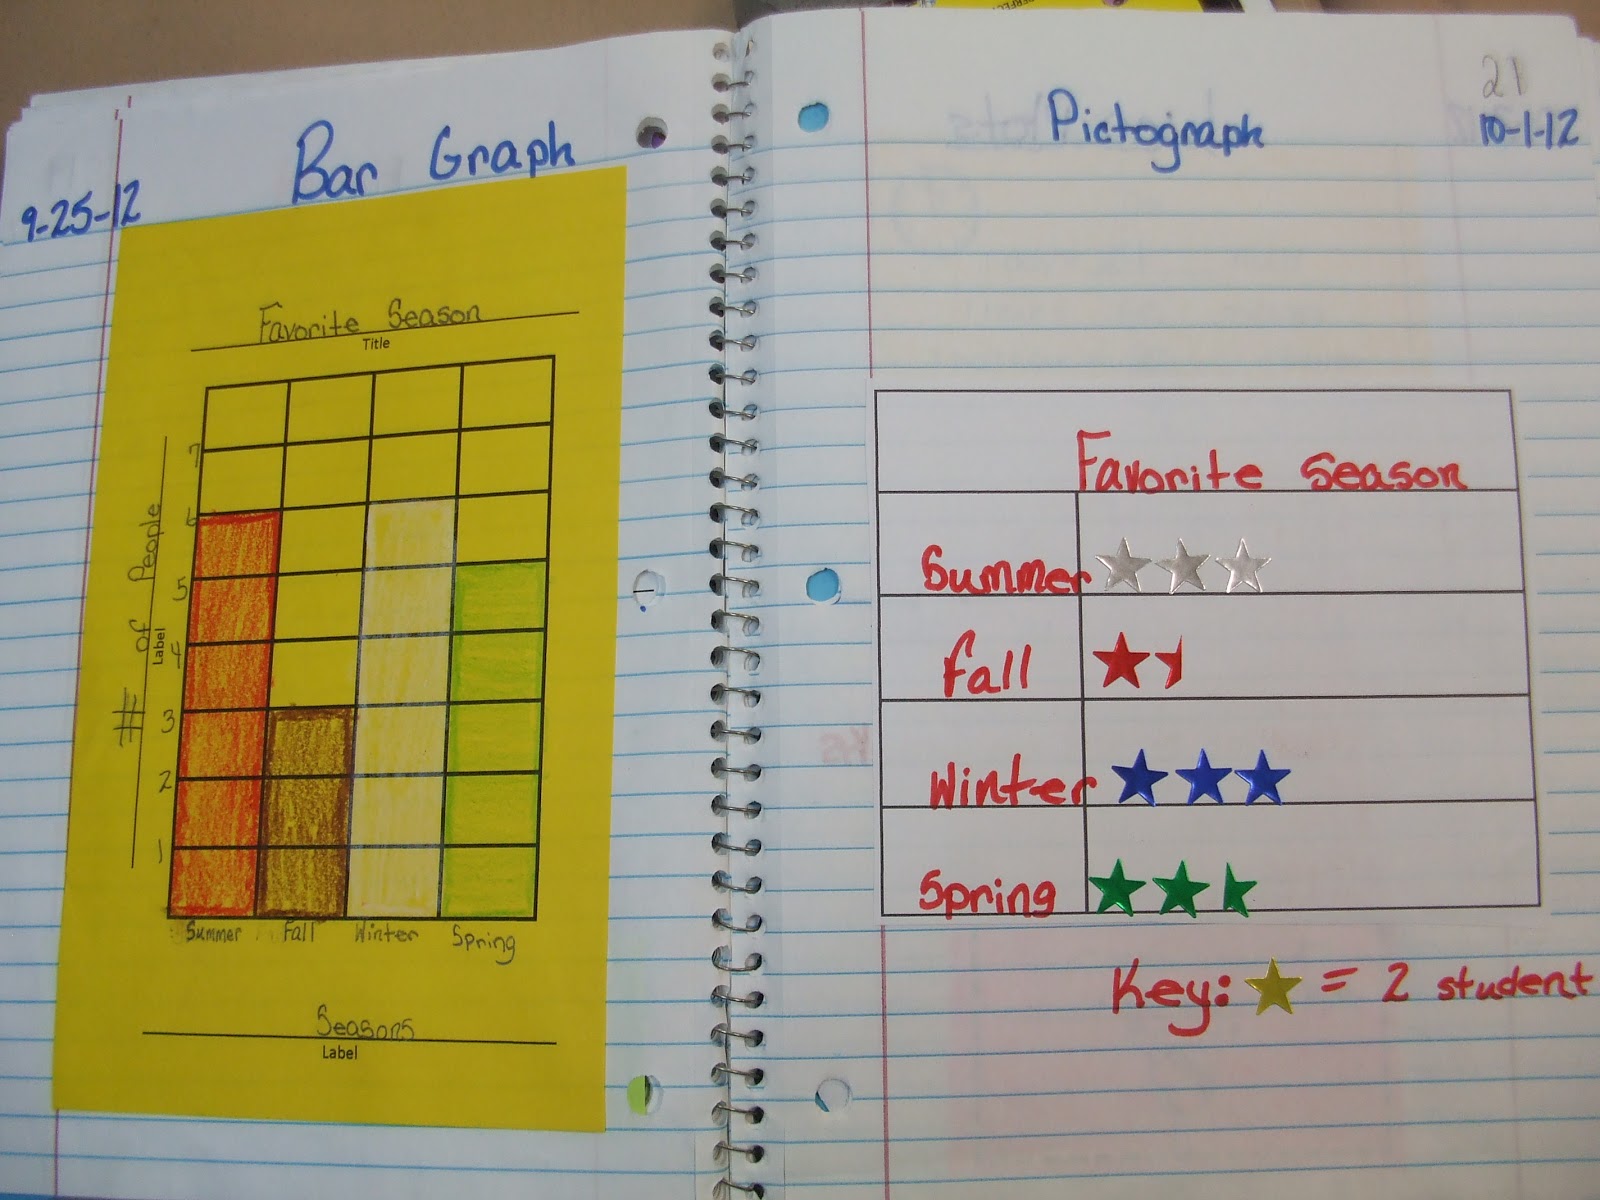 9-25-12
Bar Graph
Favorite Season
Title
# of People
Label
7
6
5
4
3
2
1
Summer Fall Winter Spring
Seasons
Label
21
Pictograph
10-1-12
Favorite Season
Summer
fall
Winter
Spring
Key: = 2 student